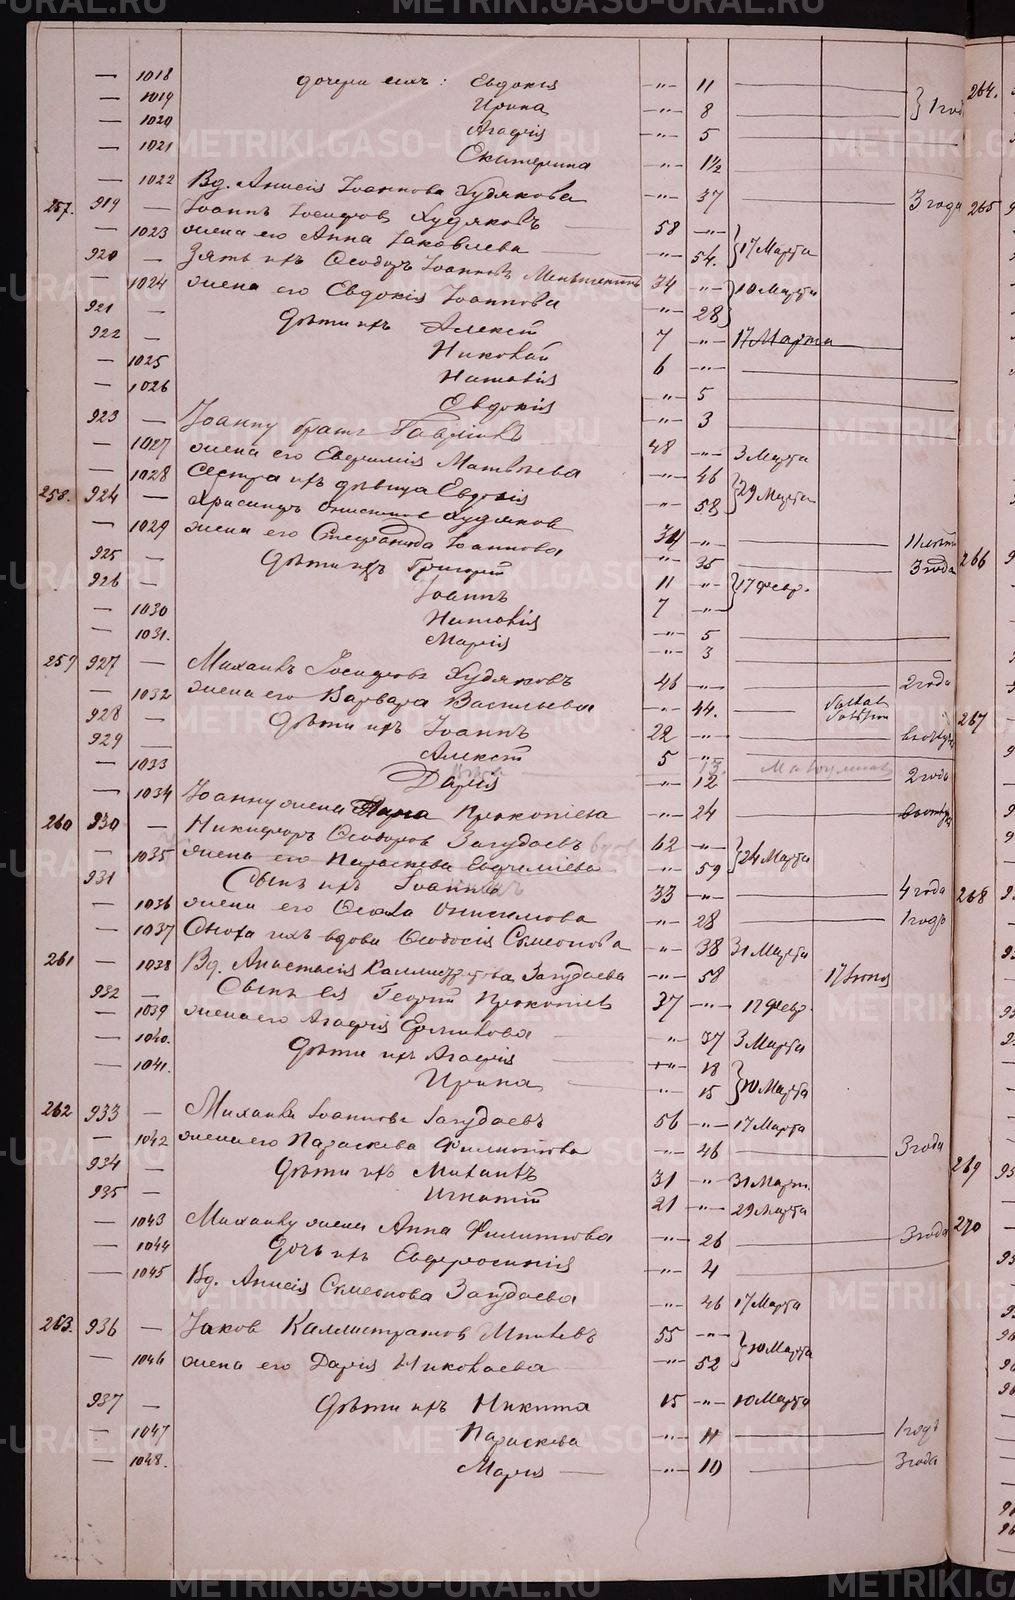 — 1018 дочери ихъ: Евдокія -„- 11 1 год 264.
— 1019 Ирина -„- 8
— 1020 Агафія -„- 5
— 1021 Екатерина -„- 1½
— 1022 Вд. Анисія Іоаннова Худякова -„- 37 3 года 265
257. 919 — Іоаннъ Іосифовъ Худяковъ 58 -„- 17 Марта
— 1023 жена его Анна Іаковлева -„- 54.
920 — Зять ихъ Ѳеодоръ Іоанновъ 34 -„- 10 Марта
— 1024 жена его Евдокія Іоаннова -„- 28
921 — Дѣти ихъ Алексій 7 -„- 17 Марта
922 — Николай 6 -„-
— 1025 Наталія -„- 5
— 1026 Евдокія -„- 3
923 — Іоанну братъ Гавріилъ 48 -„- 3 Марта
— 1027 жена его Евфимія Матвѣева -„- 46 29 Марта
— 1028 Сестра ихъ дѣвица Евдокія -„- 58
258. 924 — Онисимов Худяков 34 -„- 11 лѣтъ
— 1029 жена его Стефанида Іоаннова -„- 35 3 года 266
925 — Дѣти ихъ Григорій 11 -„- 17 февр.
926 — Іоаннъ 7 -„-
— 1030 Наталія -„- 5
— 1031. Марія -„- 3
259 927 — Михаилъ Іосифовъ Худяковъ 46 -„- 2 года
— 1032 жена его Варвара Васильева -„- 44. 267
928 — Дѣти ихъ Іоаннъ 22 -„-
929 — Алексій 5 -„-
— 1033 Дарія -„- 12 2 года
— 1034 Іоанну жена Прокопіева -„- 24
260 930 — Никифоръ Ѳеодоровъ Загудаевъ 62 -„- 24 Марта
— 1035 жена его Параскева Евфиміева -„- 59
931 — Сынъ ихъ Іоаннъ 33 -„- 4 года 268
— 1036 жена его Ѳекла Онисимова -„- 28 1 годъ
— 1037 Сноха ихъ вдова Ѳеодосія Симеонова -„- 38 31 Марта
261 — 1038 Вд. Анастасія Каллистратова Загудаева -„- 58 17 Іюня
932 — Сынъ ея Георгій Прокопіев 37 -„- 17 Февр.
— 1039 жена его Агафія Ермилова -„- 37 3 Марта
— 1040. Дѣти ихъ Агафія -„- 18 10 Марта
— 1041. Ирина -„- 15
262 933 — Михаилъ Іоанновъ Загудаевъ 56 -„- 17 Марта
— 1042 жена его Параскева Филиппова -„- 46 3 года
934 — Дѣти ихъ Михаилъ 31 -„- 31 Март. 269
935 — Игнатій 21 -„- 29 Марта
— 1043 Михаилу жена Анна Филиппова -„- 26 3 года 270
— 1044 Дочь ихъ Евфросинія -„- 4
— 1045 Вд. Анисія Симеонова Загудаева -„- 46 17 Марта
263. 936 — Іаков Каллистратов 55 -„- 10 Марта
— 1046 жена его Дарія Николаева -„- 52
937 — Дѣти ихъ Никита 15 -„- 10 Марта
— 1047 Параскева -„- 11 1 годъ
— 1048. Марія -„- 10 3 года
METRIKI.GASO-URAL.RU